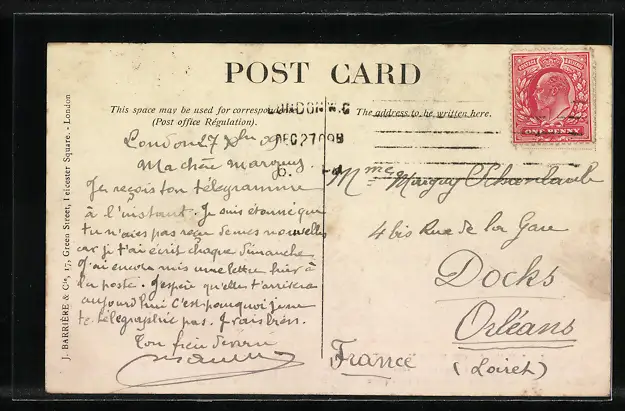 POST CARD
This space may be used for correspondence
(Post office Régulation).
The address to be written here.
LONDON.W.C
DEC 27 09
J. BARRIÈRE & Cie, 17, Green Street, Leicester Square. - London
ONE PENNY
London 27 Xbre 09
Ma chère
Je reçois ton télégramme
à l'instant. Je suis étonné que
tu n'aies pas reçu de mes nouvelles
car je t'ai écrit chaque dimanche
J'ai encore mis une lettre hier à
la poste. J'espère qu'elle t'arrivera
aujourd'hui c'est pourquoi je ne
te télégraphie pas. Je vais bien.
Ton
Mme
4 bis Rue de la Gare
Docks
Orléans
France (Loiret)